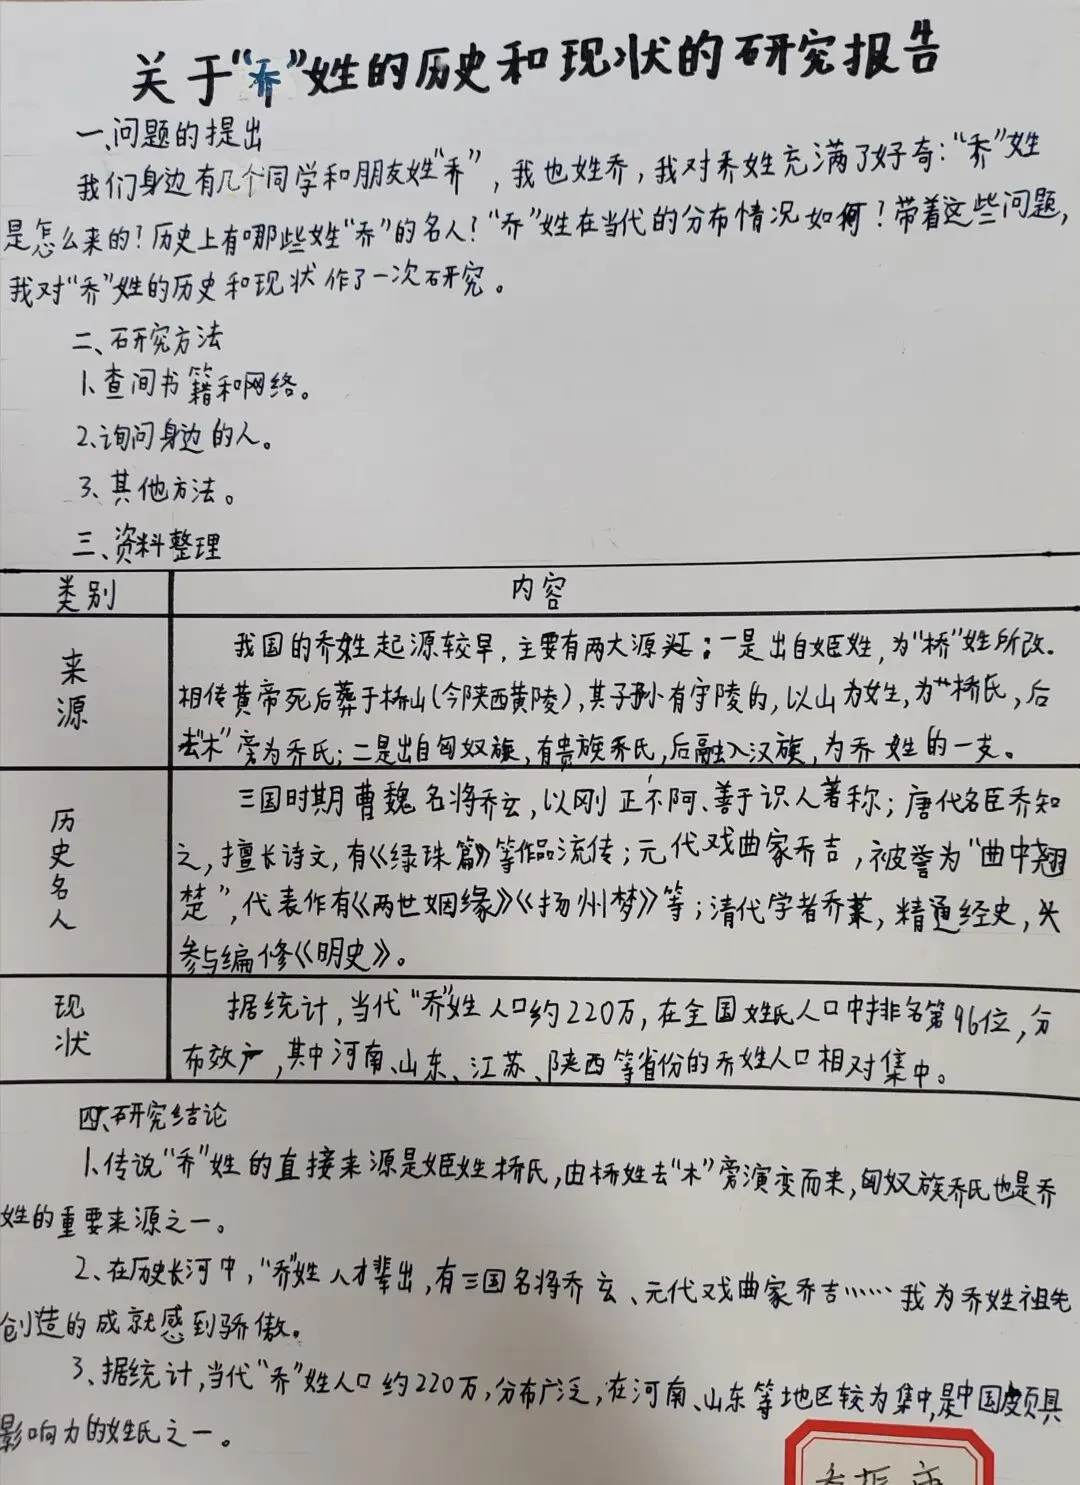 关于“乔”姓的历史和现状的研究报告
一、问题的提出
我们身边有几个同学和朋友姓“乔”，我也姓乔，我对乔姓充满了好奇：“乔”姓
是怎么来的？历史上有哪些姓“乔”的名人？“乔”姓在当代的分布情况如何？带着这些问题，
我对“乔”姓的历史和现状作了一次研究。
二、研究方法
1、查间书籍和网络。
2、询问身边的人。
3、其他方法。
三、资料整理
类别 内容
来源
我国的乔姓起源较早，主要有两大源头：一是出自姬姓，为“桥”姓所改。
相传黄帝死后葬于桥山（今陕西黄陵），其子孙有守陵的，以山为姓，为“桥氏，后
去“木”旁为乔氏；二是出自匈奴族，有贵族乔氏，后融入汉族，为乔姓的一支。
历史名人
三国时期曹魏名将乔玄，以刚正不阿、善于识人著称；唐代名臣乔知
之，擅长诗文，有《绿珠篇》等作品流传；元代戏曲家乔吉，被誉为“曲中翘
楚”，代表作有《两世姻缘》《扬州梦》等；清代学者乔莱，精通经史，
参与编修《明史》。
现状
据统计，当代“乔”姓人口约220万，在全国姓氏人口中排名第96位，分
布效广，其中河南、山东、江苏、陕西等省份的乔姓人口相对集中。
四、研究结论
1、传说“乔”姓的直接来源是姬姓桥氏，由桥姓去“木”旁演变而来，匈奴族乔氏也是乔
姓的重要来源之一。
2、在历史长河中，“乔”姓人才辈出，有三国名将乔玄、元代戏曲家乔吉……我为乔姓祖先
创造的成就感到骄傲。
3、据统计，当代“乔”姓人口约220万，分布广泛，在河南、山东等地区较为集中，是中国颇具
影响力的姓氏之一。